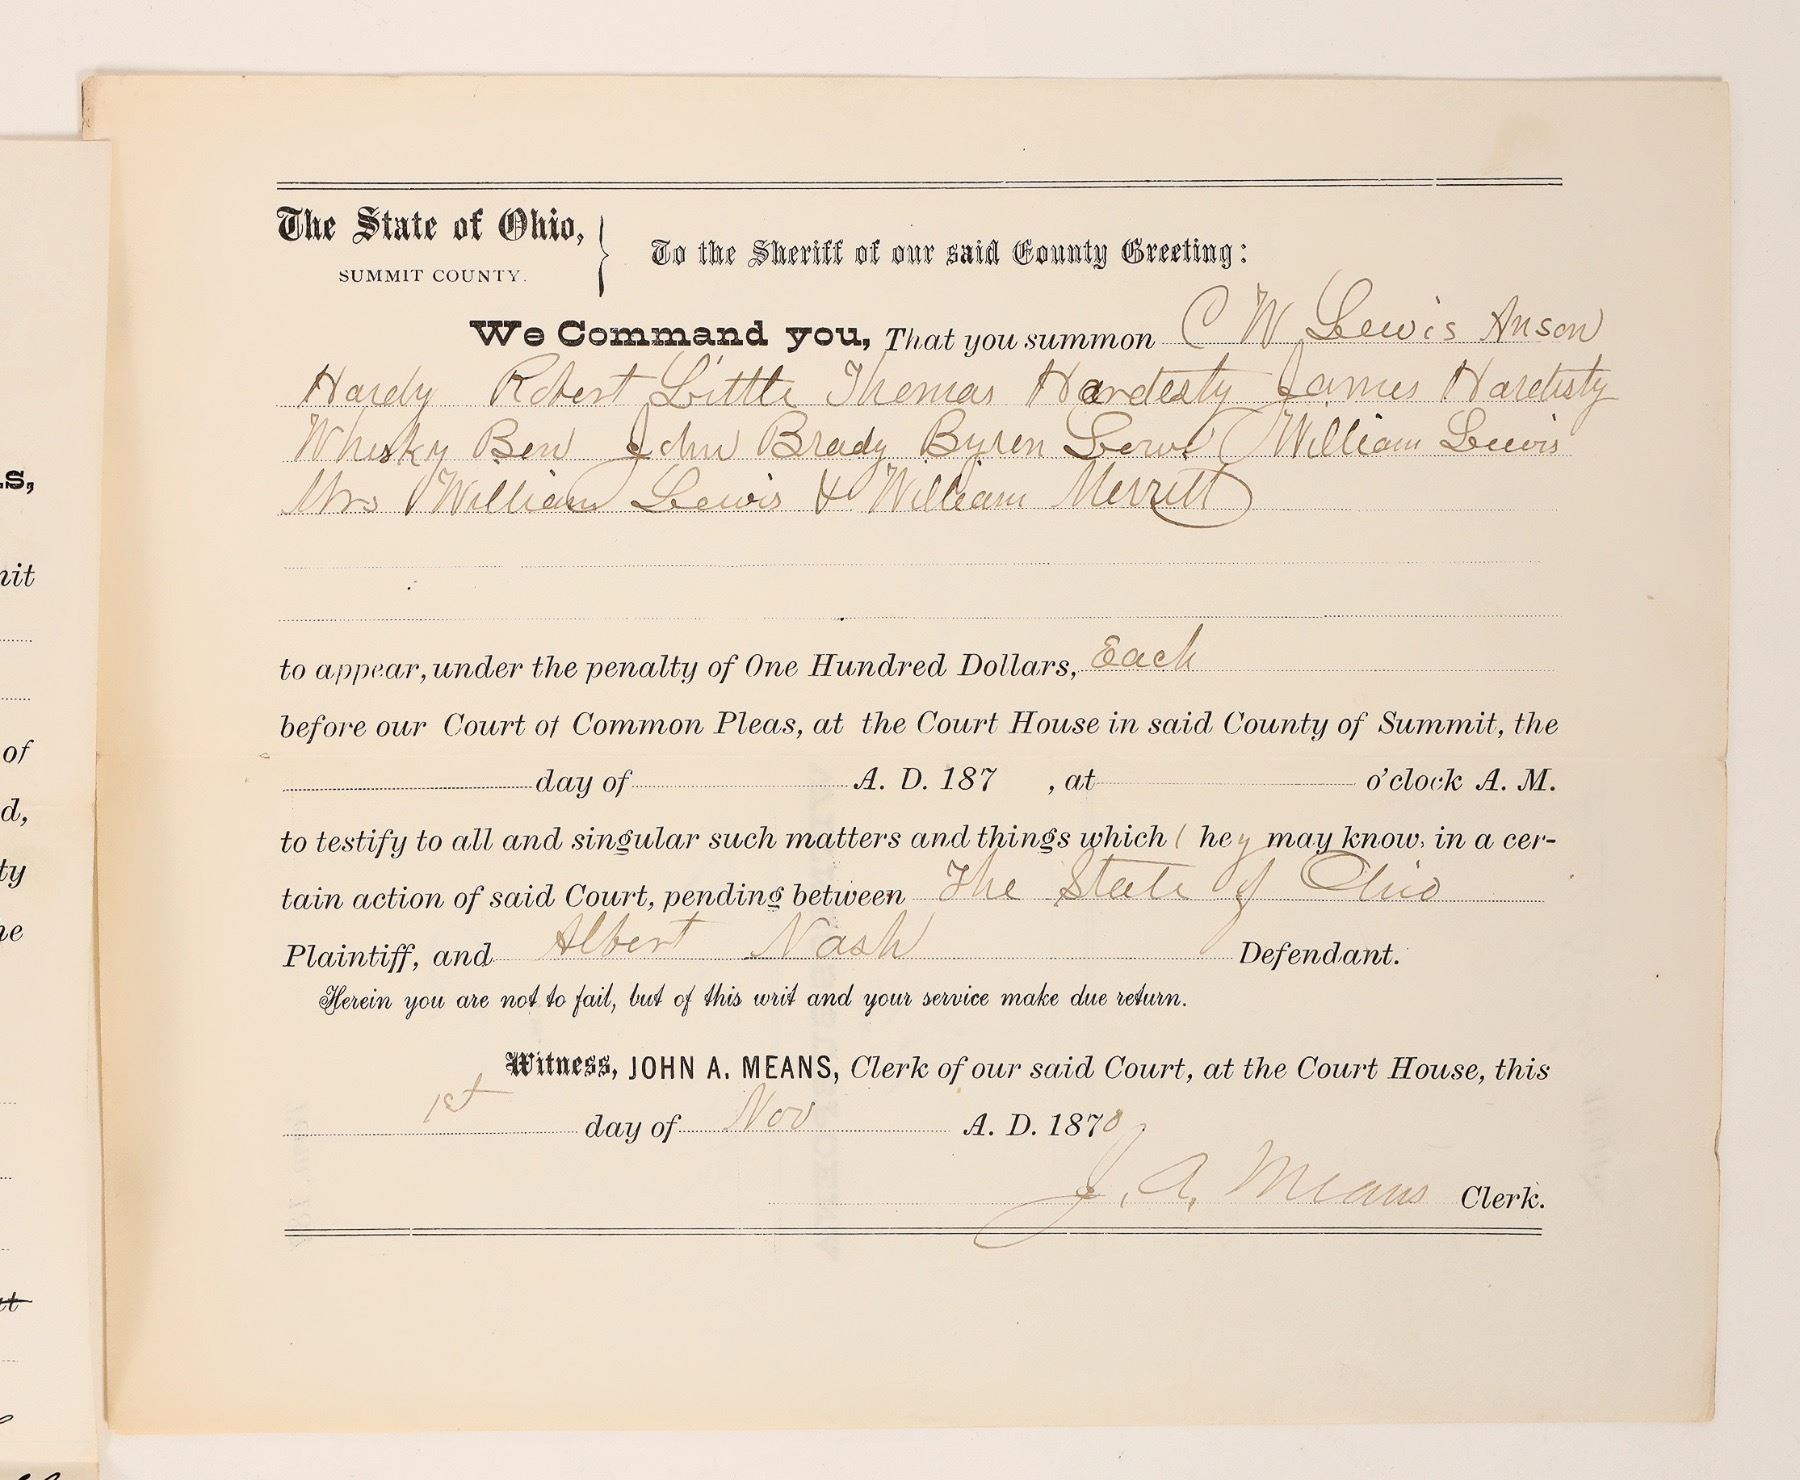 The State of Ohio,
SUMMIT COUNTY.
To the Sheriff of our said County Greeting:
We Command you, That you summon C W Lewis Anson
Hardy Robert Little Thomas Hardesty James Hardisty
Whisky Ben John Brady Byren Lewis William Lewis
Mrs William Lewis & William Merritt
to appear, under the penalty of One Hundred Dollars, Each
before our Court of Common Pleas, at the Court House in said County of Summit, the
day of A. D. 187 , at o'clock A. M.
to testify to all and singular such matters and things which they may know, in a cer-
tain action of said Court, pending between The State of Ohio
Plaintiff, and Albert Nash Defendant.
Herein you are not to fail, but of this writ and your service make due return.
Witness, JOHN A. MEANS, Clerk of our said Court, at the Court House, this
1st day of Nov A. D. 1870
J. A. Means Clerk.